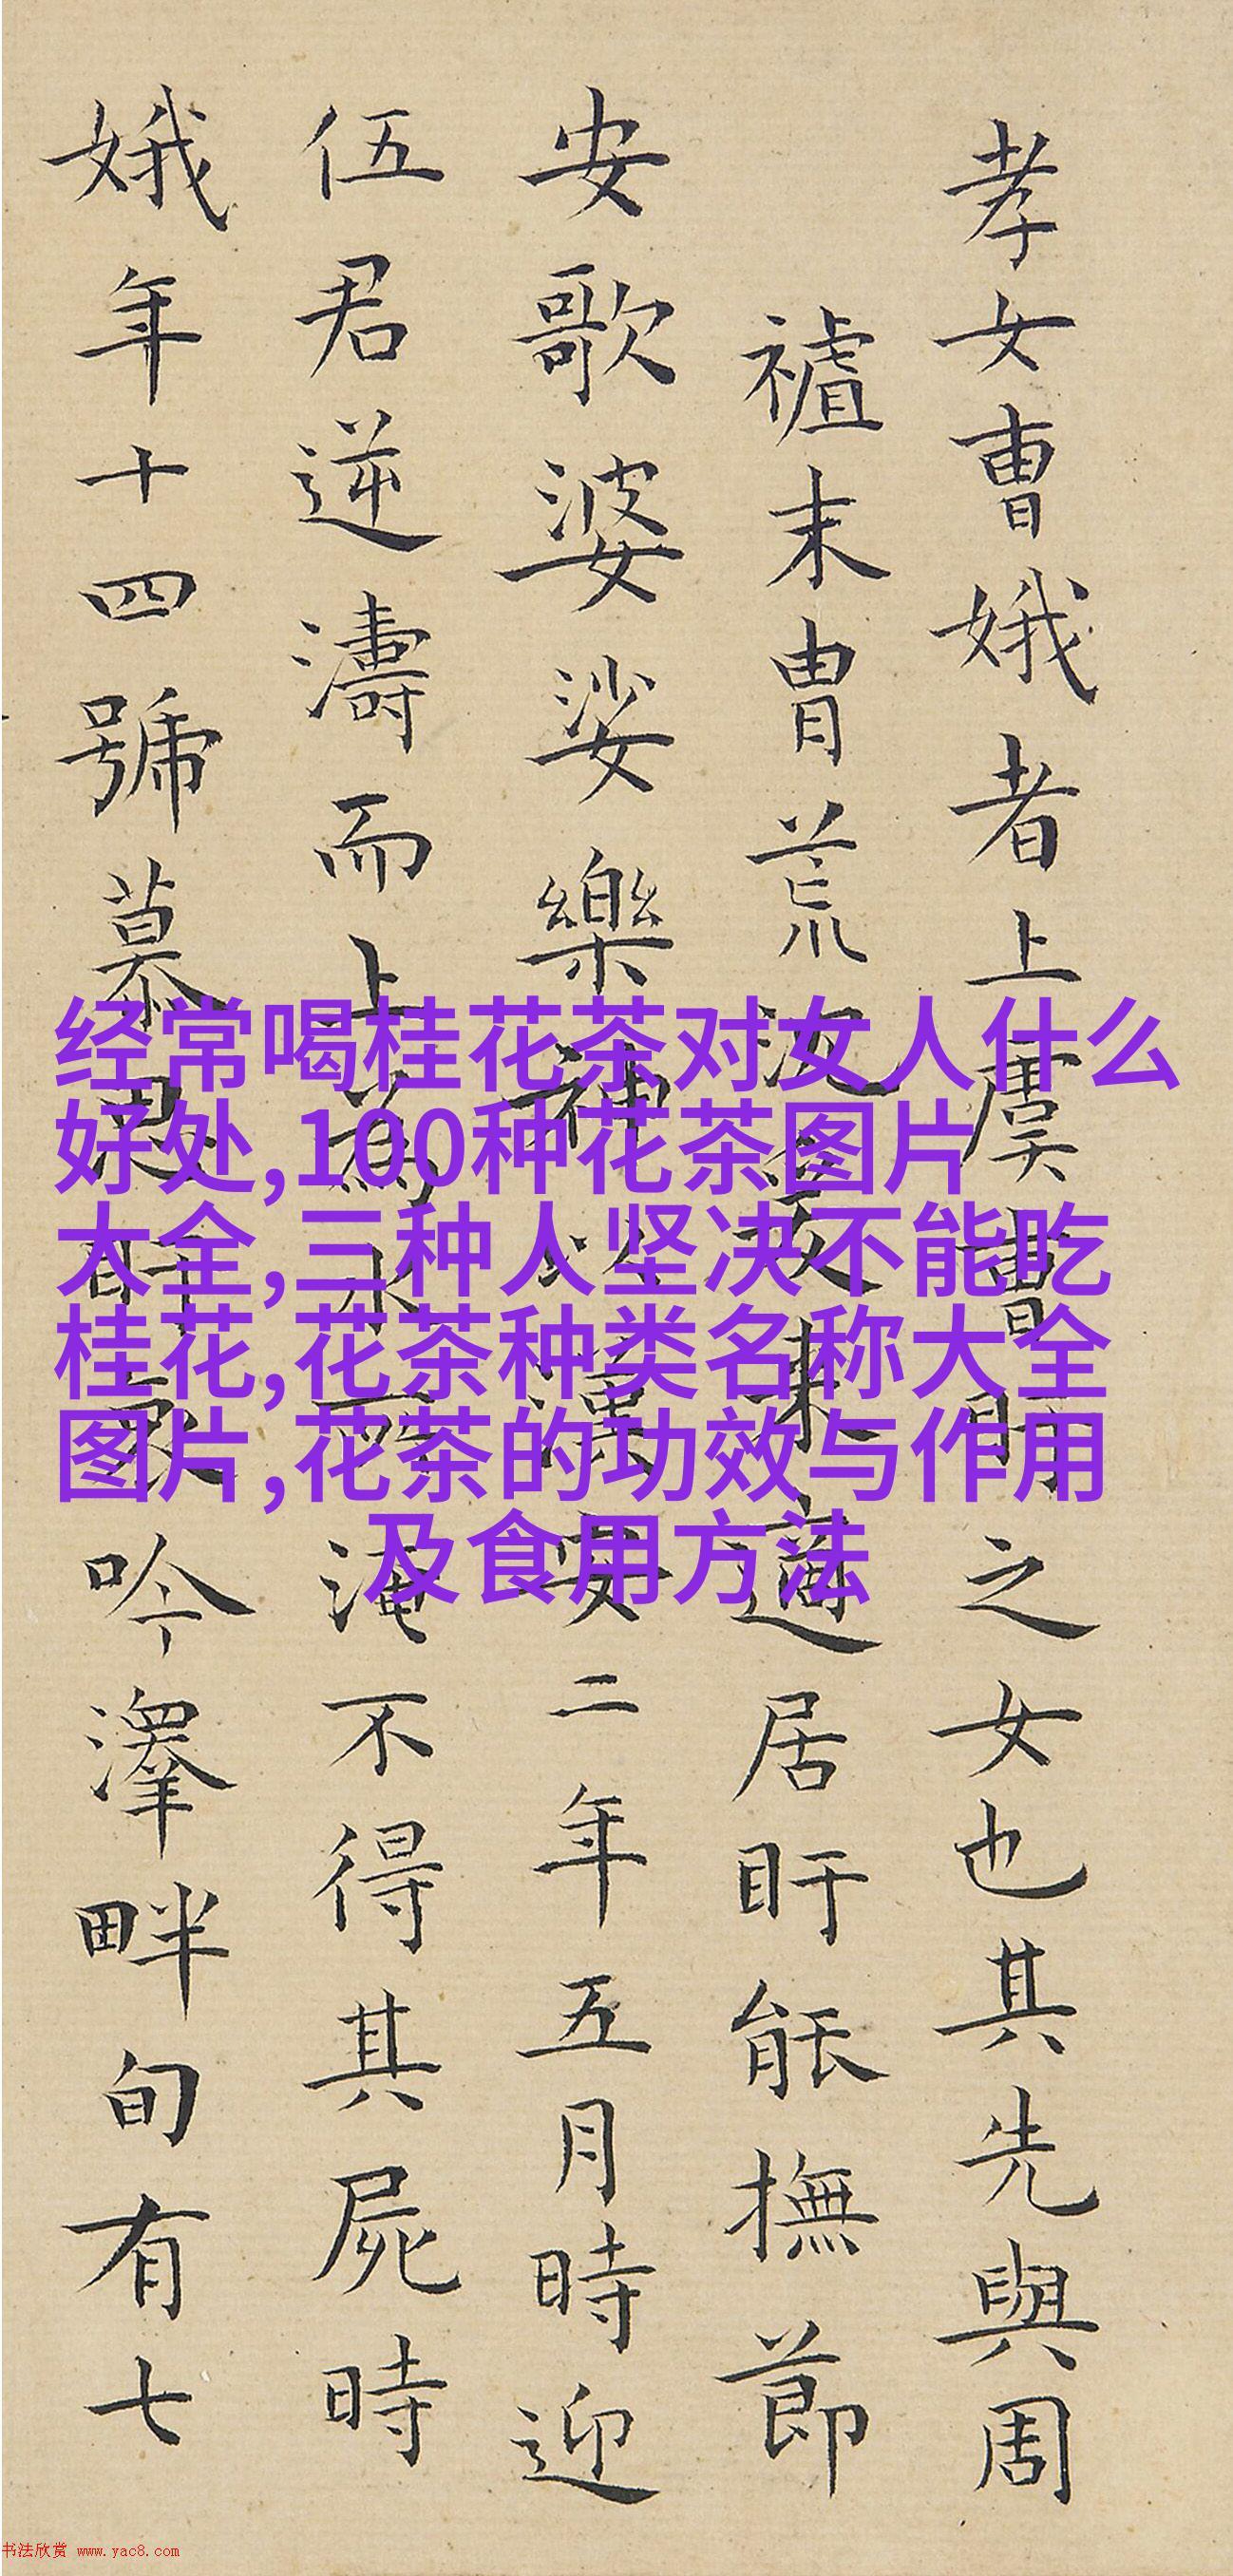 孝女曹娥者上虞曹盱之女也其先與周
禇末胄荒沉爰来適居盱能撫節
安歌婆娑樂神以漢安二年五月時迎
伍君逆濤而上為水所淹不得其屍時
娥年十四號慕思盱哀吟澤畔旬有七
经常喝桂花茶对女人什么
好处,100种花茶图片
大全,三种人坚决不能吃
桂花,花茶种类名称大全
图片,花茶的功效与作用
及食用方法
书法欣赏 www.yac8.com